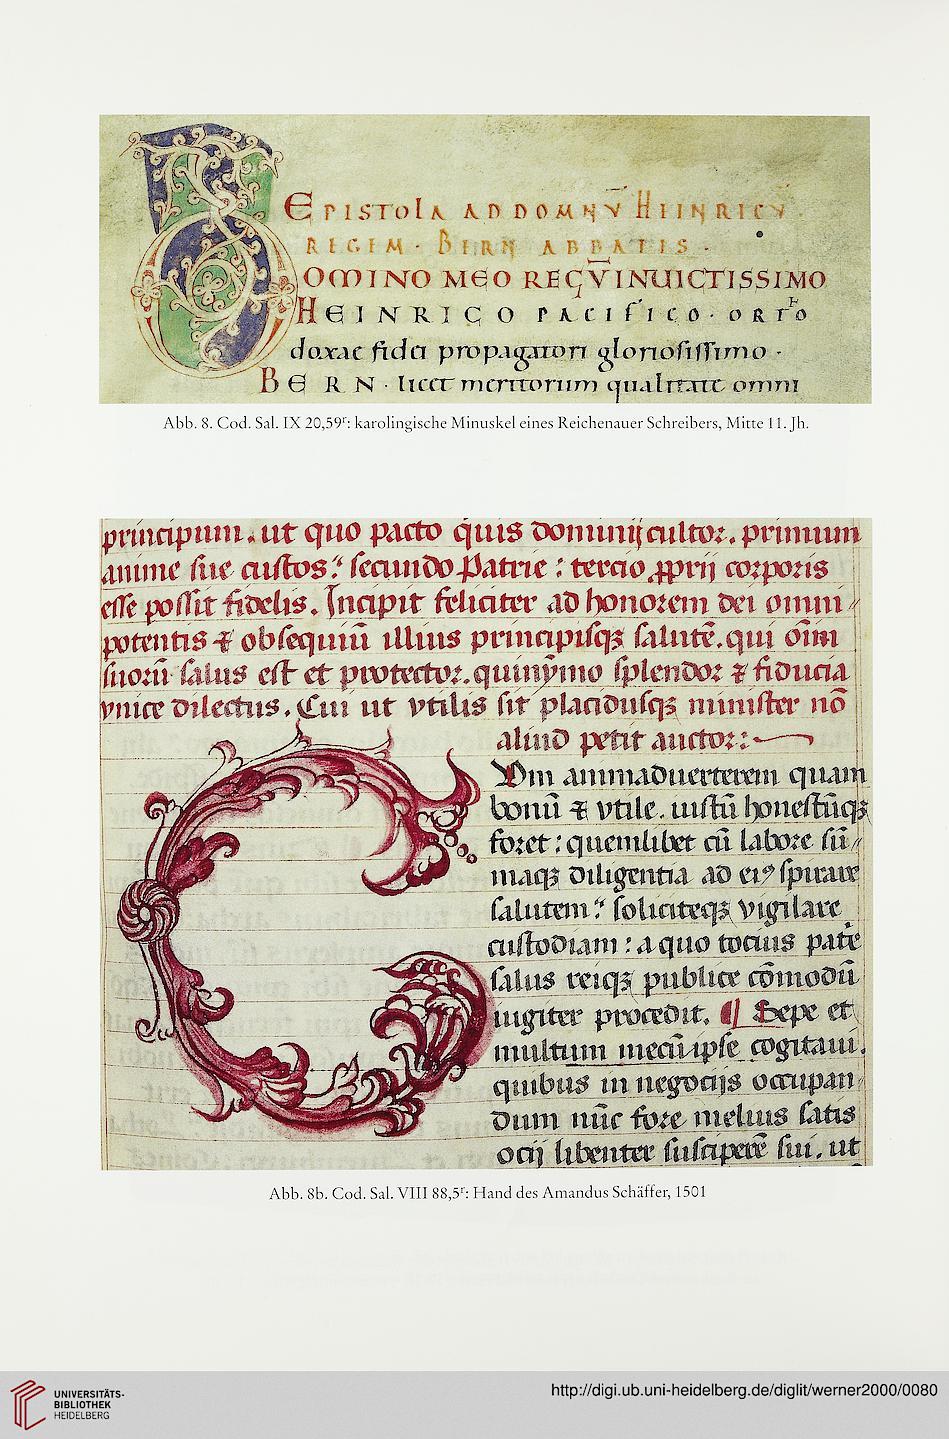 EPISTOLA AD DOMNV̄ HEINRICV̄
REGEM · BERN ABBATIS ·
DOMINO MEO REGV̄ INUICTISSIMO
HEINRICO PACIFICO · ORTO
doxae fidei propagatori gloriosissimo ·
BERN · licet meritorum qualitate omni
Abb. 8. Cod. Sal. IX 20,59ʳ: karolingische Minuskel eines Reichenauer Schreibers, Mitte 11. Jh.
principum. ut quo pacto quis dominij cultor. primum
anime sue custos: secundo Patrie: tercio ꝓprij corporis
esse possit fidelis. Incipit feliciter ad honorem dei omni//
potentis ⁊ obsequiū illius principisqꝫ salutē. qui oīm
suorū salus est et protector. quinymo splendor ⁊ fiducia
vnice dilectus. Cui ut vtilis sit placidusqꝫ minister nō
aliud petit auctor:
Vm animaduerterem quam
bonū ⁊ vtile. iustū honestūqꝫ
foret: quemlibet cū labore sū//
maqꝫ diligentia ad eiꝰ spirare
salutem: soliciteqꝫ vigilare
custodiam: a quo tocius patrē
salus reiqꝫ publice cōmodū
iugiter procedit. ¶ Sepe et
multum mecū ipse cogitaui.
quibus in negocijs occupan//
dum nūc fore melius satis
ocij libenter susciperē sui. ut
Abb. 8b. Cod. Sal. VIII 88,5ʳ: Hand des Amandus Schäffer, 1501
UNIVERSITÄTS-
BIBLIOTHEK
HEIDELBERG
http://digi.ub.uni-heidelberg.de/diglit/werner2000/0080